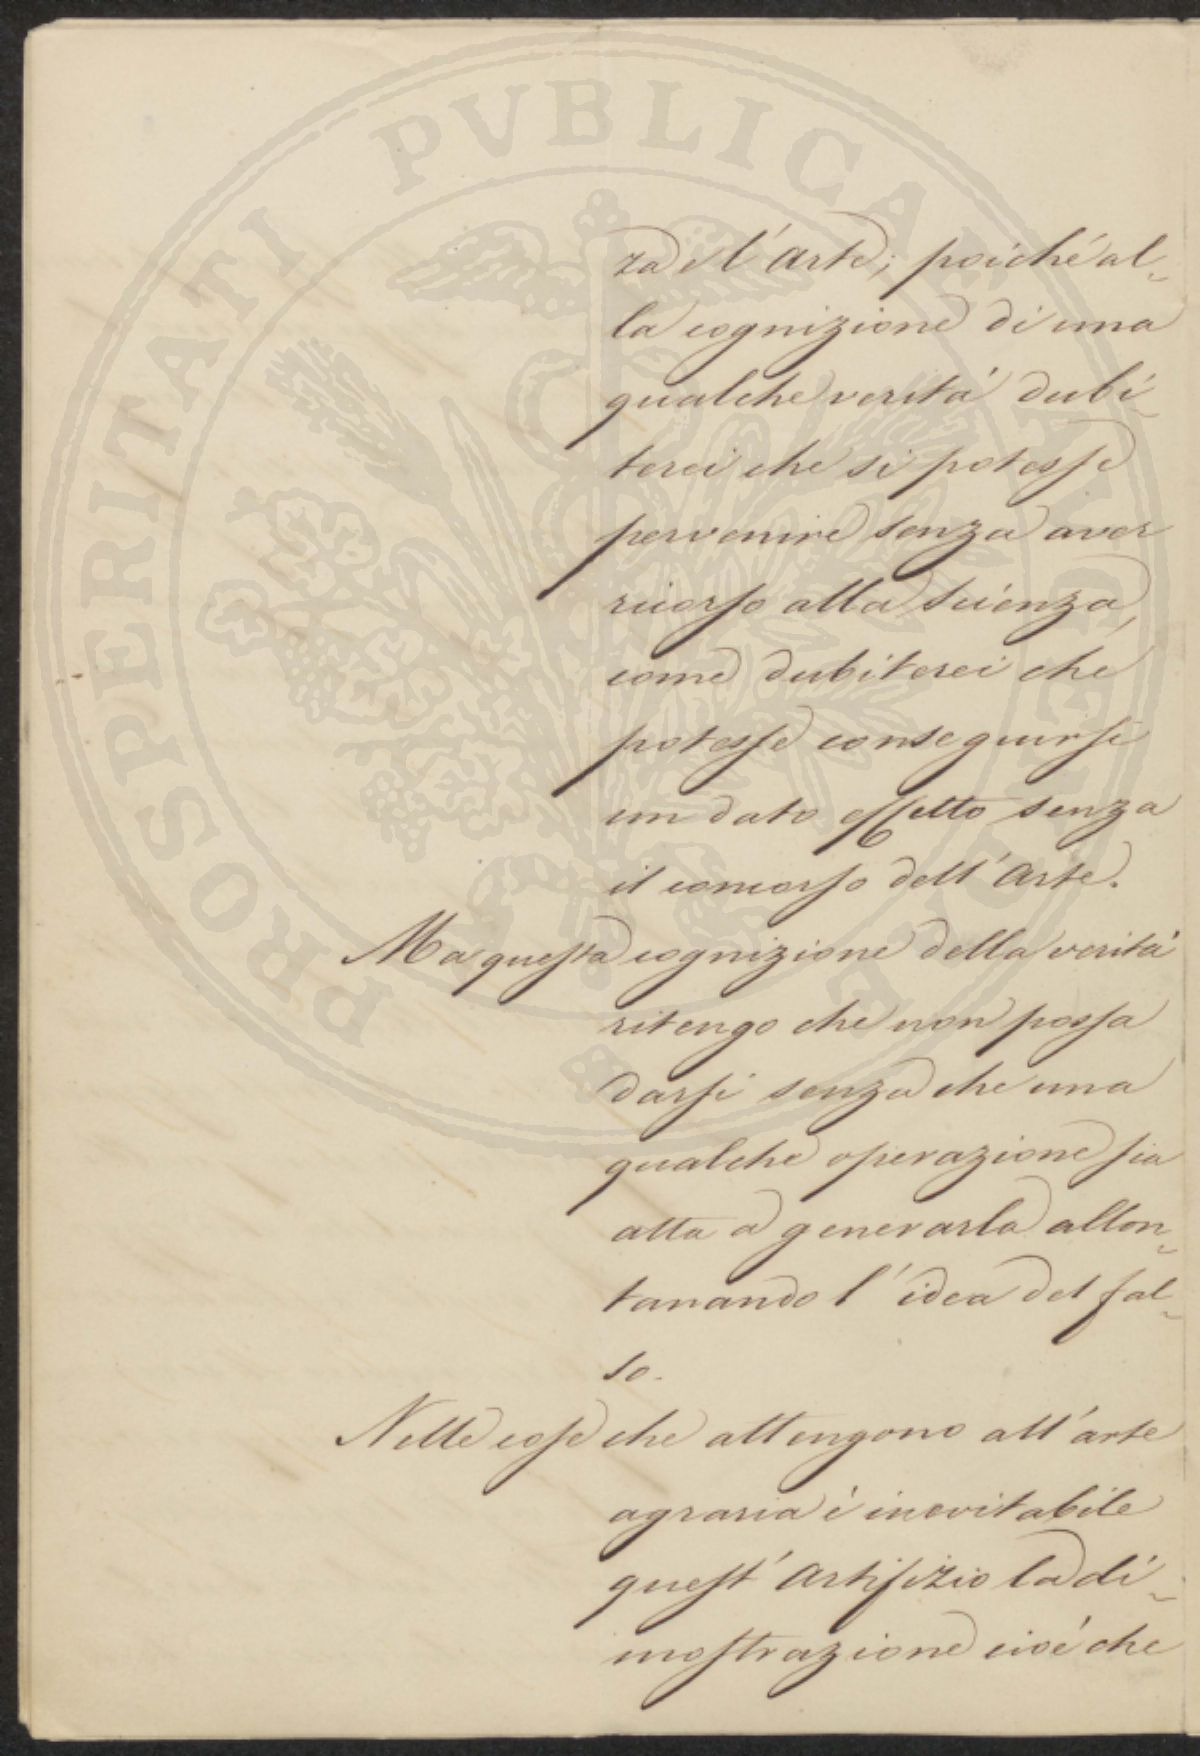 PROSPERITATI PVBLICAE AVGENDAE
za e l'Arte; poichè al-
la cognizione di una
qualche verità dubi-
terei che si potesse
pervenire senza aver
ricorso alla Scienza,
come dubiterei che
potesse conseguirsi
un dato effetto senza
il concorso dell'Arte.
Ma questa cognizione della verità
ritengo che non possa
darsi senza che una
qualche operazione sia
atta a generarla allon-
tanando l'idea del fal-
so.
Nelle cose che attengono all'arte
agraria è inevitabile
quest'Artifizio la di-
mostrazione cioè che